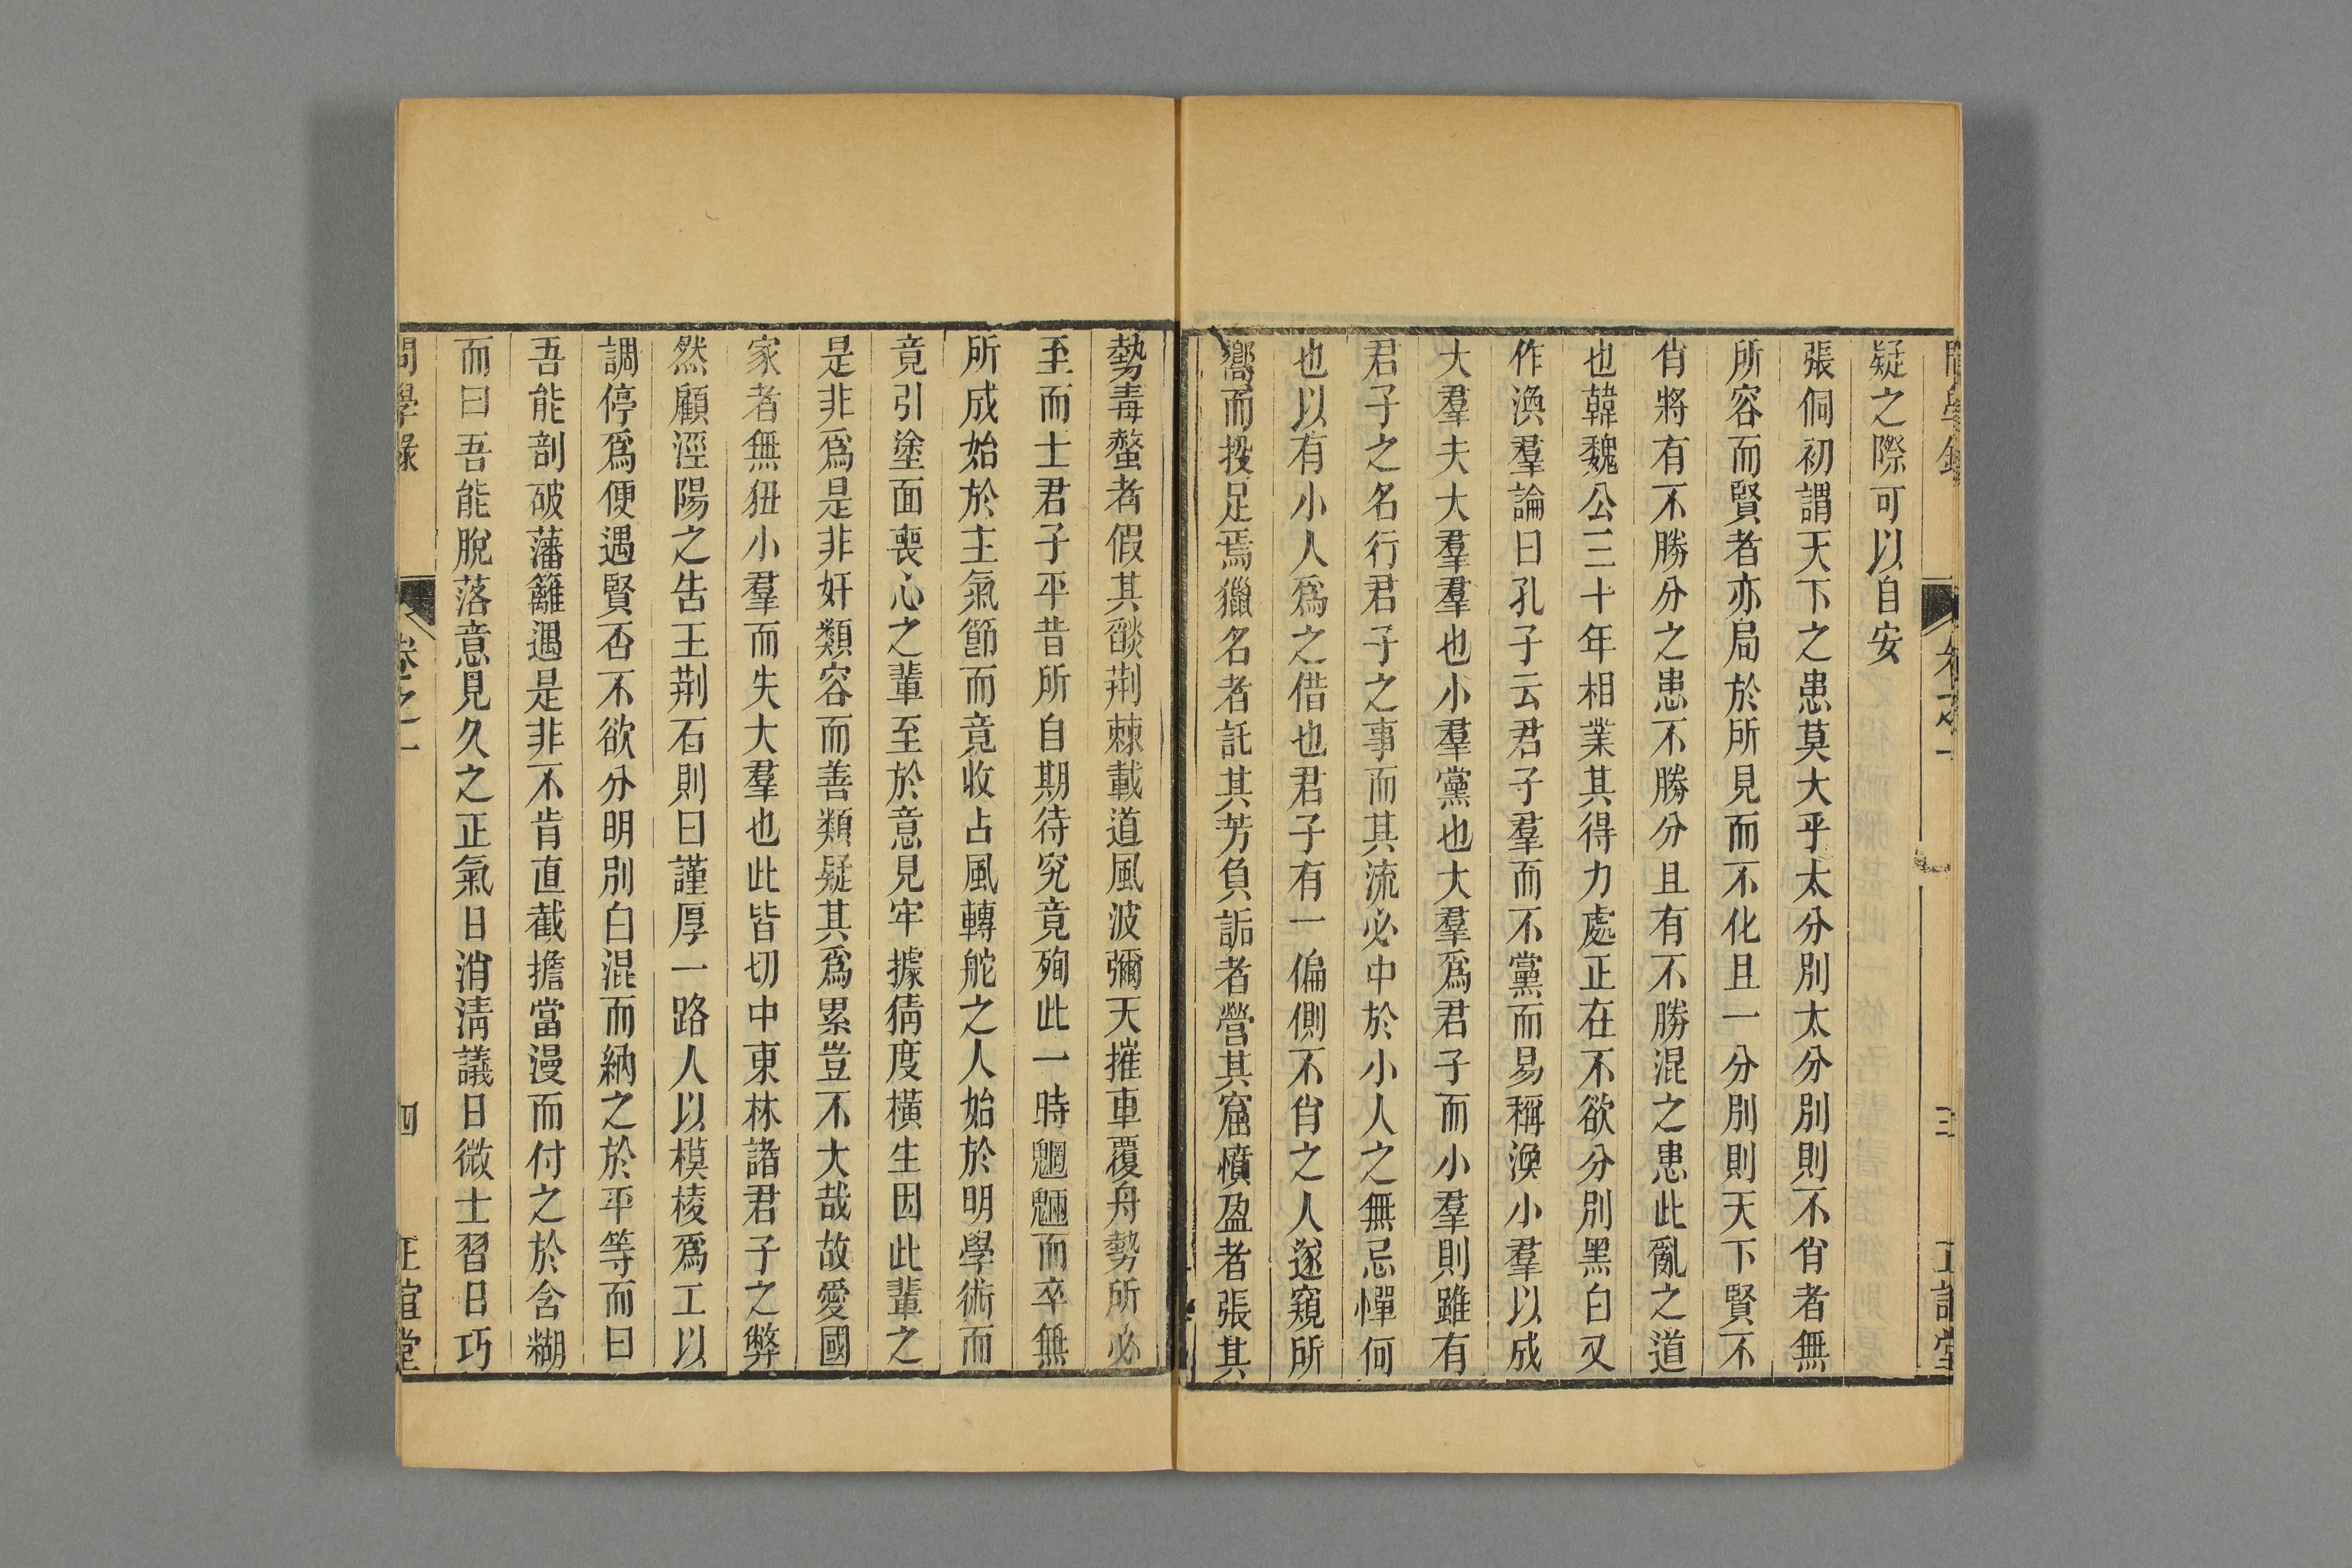 疑之際可以自安
張侗初謂天下之患莫大乎太分別太分別則不肖者無
所容而賢者亦局於所見而不化且一分別則天下賢不
肖將有不勝分之患不勝分且有不勝混之患此亂之道
也韓魏公三十年相業其得力處正在不欲分別黑白又
作渙羣論曰孔子云君子羣而不黨而易稱渙小羣以成
大羣夫大羣羣也小羣黨也大羣爲君子而小羣則雖有
君子之名行君子之事而其流必中於小人之無忌憚何
也以有小人爲之借也君子有一偏側不肖之人遂窺所
嚮而投足焉獵名者託其芳負詬者營其窟憤盈者張其
勢毒螫者假其燄荆棘載道風波彌天摧車覆舟勢所必
至而士君子平昔所自期待究竟殉此一時魍魎而卒無
所成始於主氣節而竟收占風轉舵之人始於明學術而
竟引塗面喪心之輩至於意見牢據猜度橫生因此輩之
是非爲是非奸類容而善類疑其爲累豈不大哉故愛國
家者無狃小羣而失大羣也此皆切中東林諸君子之弊
然顧涇陽之告王荆石則曰謹厚一路人以模棱爲工以
調停爲便遇賢否不欲分明別白混而納之於平等而曰
吾能剖破藩籬遇是非不肯直截擔當漫而付之於含糊
而曰吾能脫落意見久之正氣日消淸議日微士習日巧
問學錄 卷之一 四 正誼堂